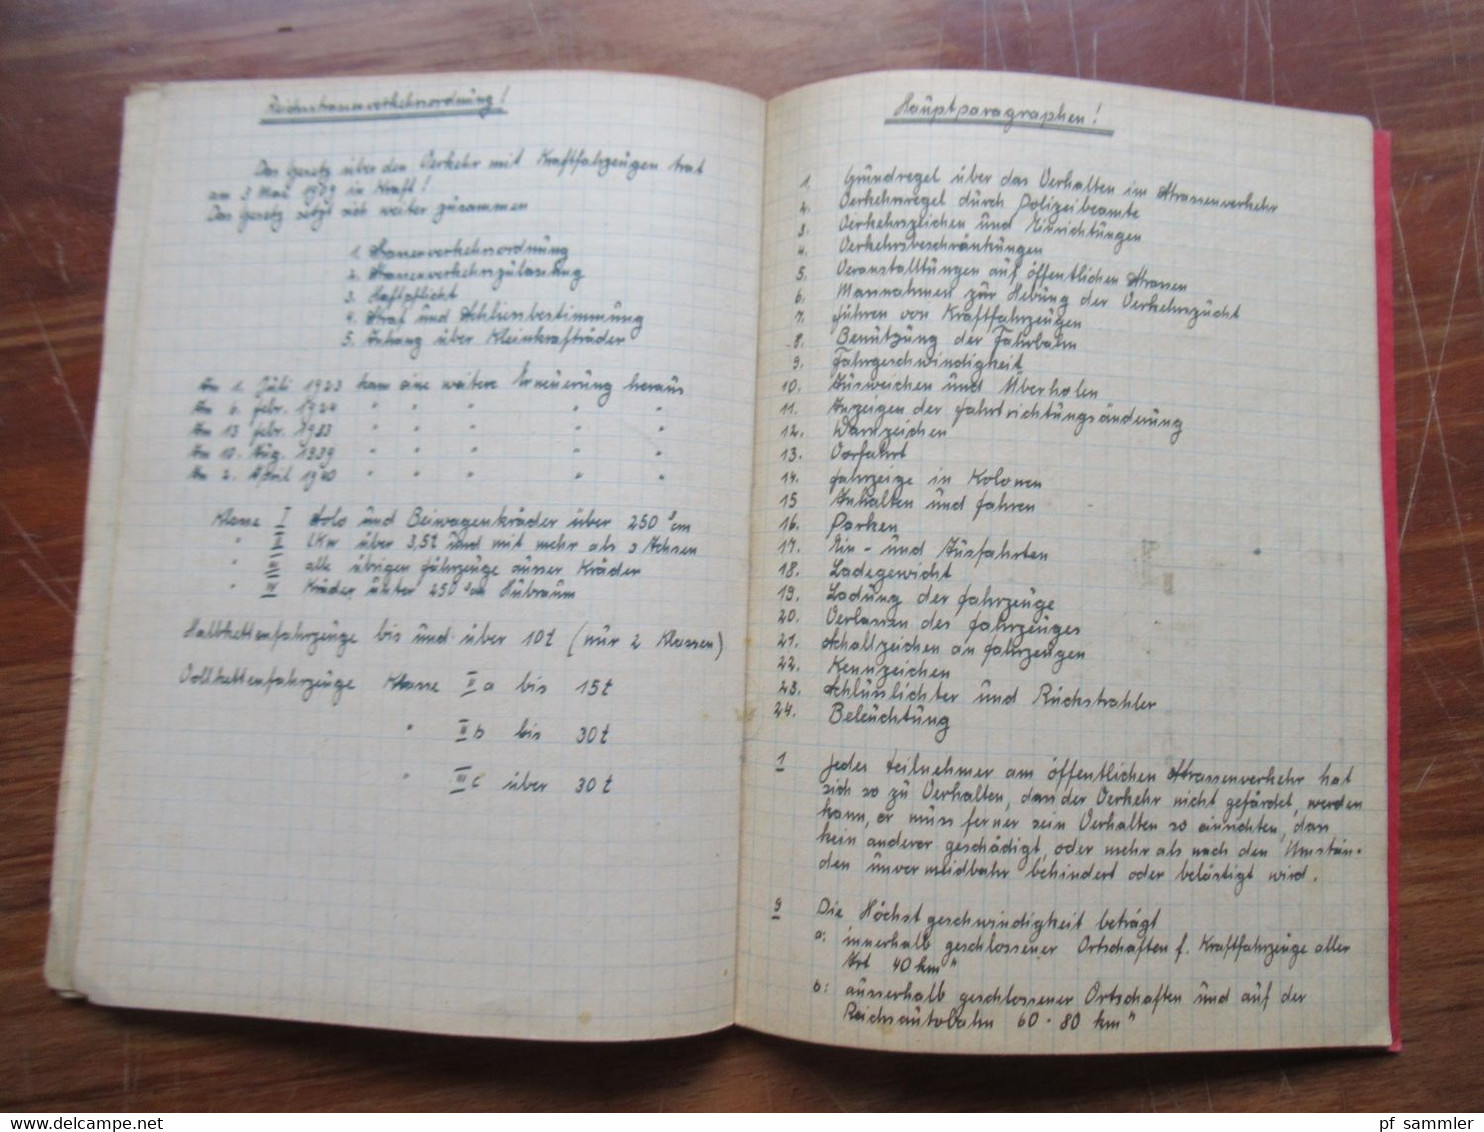 Reichsstrassenverkehrsordnung!
Das Gesetz über den Verkehr mit Kraftfahrzeugen trat
am 3 Mai in Kraft!
Das Gesetz setzt sich weiter zusammen
1. Strassenverkehrsordnung
2. Strassenverkehrszulassung
3. Haftpflicht
4. Straf und Schlussbestimmung
5. Anhang über Kleinkrafträder
Am 1. Juli 1923 kam eine weitere Erneuerung heraus
Am 6. febr. 1924 " " " " "
Am 13 febr. " " " " "
Am 10. Aug. 1939 " " " " "
Am 2. April 1940 " " " " "
Klasse I Solo und Beiwagenkräder über 250 ³cm
" II LKw über 3,5t und mit mehr als 3 Achsen
" III alle übrigen fahrzeuge ausser Kräder
" IV Kräder unter 250 ³cm Hubraum
Halbkettenfahrzeuge bis und über 10t (nur 2 Klassen)
Vollkettenfahrzeuge Klasse II a bis 15t
" II b bis 30t
" c über 30t
Hauptparagraphen!
1. Grundregel über das Verhalten im Strassenverkehr
2. Verkehrsregel durch Polizeibeamte
3. Verkehrszeichen und Einrichtungen
4. Verkehrsbeschränkungen
5. Veranstalltungen auf öffentlichen Strassen
6. Massnahmen zur Hebung der Verkehrszucht
7. führen von Kraftfahrzeugen
8. Benutzung der Fahrbahn
9. Fahrgeschwindigkeit
10. Ausweichen und Überholen
11. Anzeigen der fahrtrichtungsänderung
12. Warnzeichen
13. Vorfahrt
14. fahrzeige in Kolonen
15 Anhalten und fahren
16. Parken
17. Ein- und Ausfahrten
18. Ladegewicht
19. Ladung der fahrzeuge
20. Verlassen des fahrzeuges
21. Schallzeichen an fahrzeugen
22. Kennzeichen
23. Schlusslichter und Rückstrahler
24. Beleuchtung
1 jeder teilnehmer am öffentlichen Strassenverkehr hat
sich so zu Verhalten, dass der Verkehr nicht gefärdet, werden
kann, er muss ferner sein Verhalten so einrichten, dass
kein anderer geschädigt, oder mehr als nach den Umstän-
den unvermeidbahr behindert oder belästigt wird.
9 Die Höchstgeschwindigkeit beträgt
a: innerhalb geschlossener Ortschaften f. Kraftfahrzeuge aller
Art 40 km"
b: ausserhalb geschlossener Ortschaften und auf der
Reichsautobahn 60-80 km"
www.delcampe.net
pf_sammler